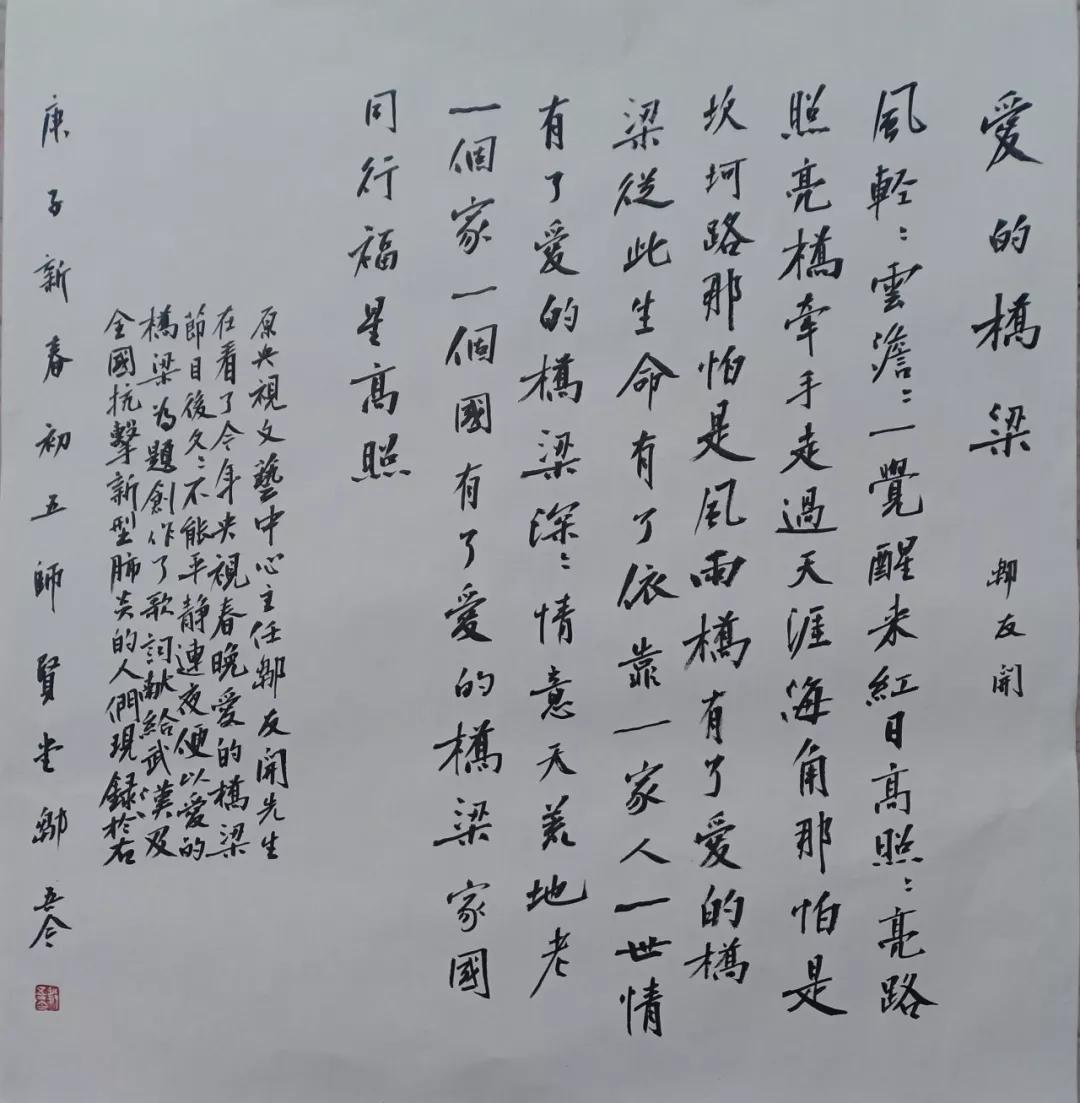 愛的橋梁 鄭友開
風輕：雲澹：一覺醒来紅日高照：亮路
照亮橋牽手走過天涯海角那怕是
坎坷路那怕是風雨橋有了愛的橋
梁從此生命有了依靠一家人一世情
有了愛的橋梁深：情意天荒地老
一個家一個國有了愛的橋梁家國
同行福星高照
原央視文藝中心主任鄒友開先生
在看了今年央視春晚愛的橋梁
節目後久：不能平静連夜便以愛的
橋梁为題創作了歌詞献給武漢及
全國抗擊新型肺炎的人們現録於右
庚子新春初五師賢堂鄒